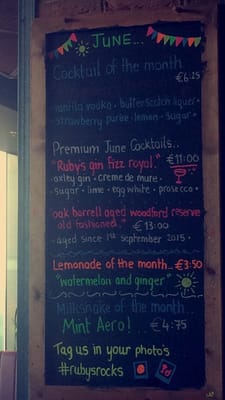 JUNE...
Cocktail of the month
€6.25
vanilla vodka • butterscotch liquer •
strawberry purée • lemon • sugar •
Premium June Cocktails..
"Ruby's gin fizz royal." €11:00
oxley gin • creme de mure •
sugar • lime • egg white • prosecco •
oak barrell aged woodford reserve
old fashioned." €13:00
• aged since 1st september 2015 •
Lemonade of the month.. €3:50
"watermelon and ginger"
Milkshake of the month...
Mint Aero!... €4:75
Tag us in your photo's
#rubysrocks